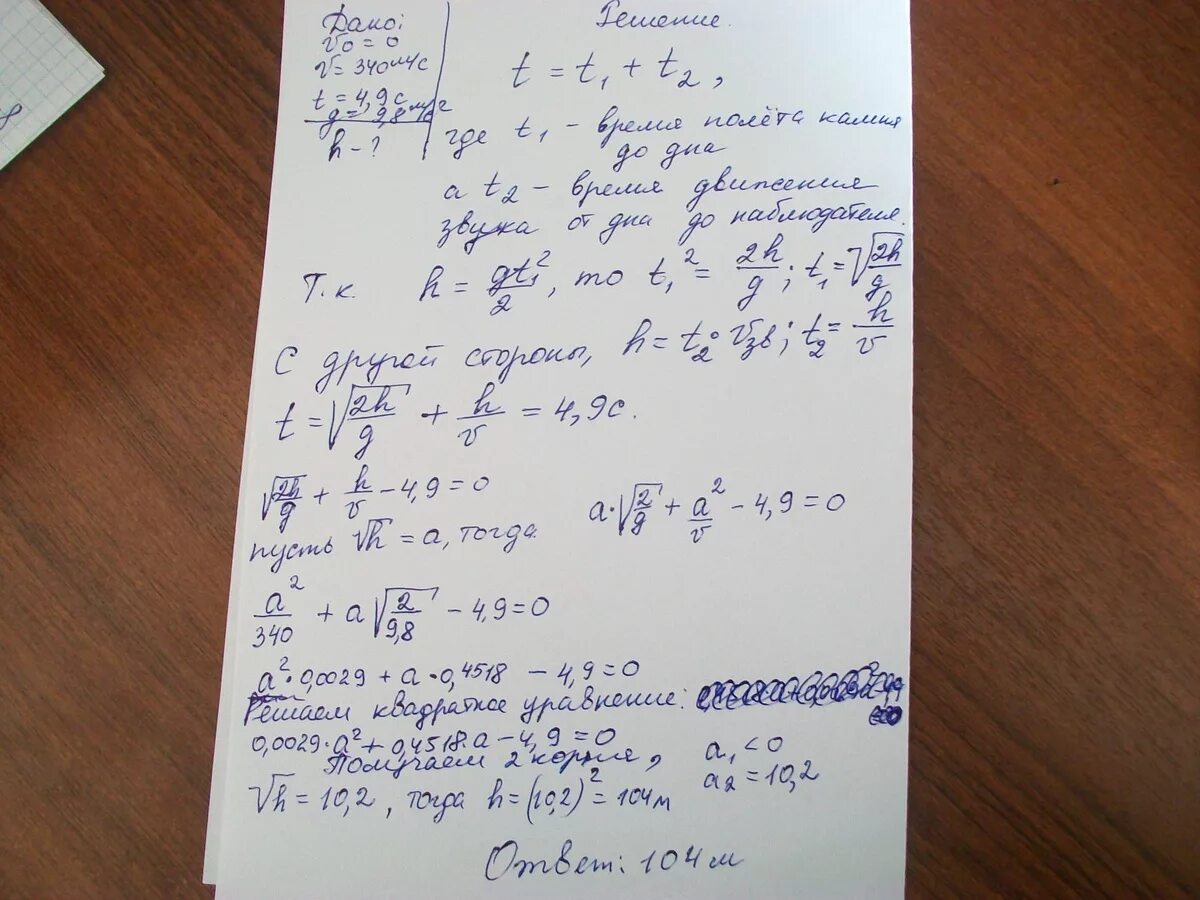 Дано:
v₀ = 0
v = 340 м/с
t = 4,9 с
g = 9,8 м/с²
h - ?
Решение.
t = t₁ + t₂,
где t₁ - время полёта камня
до дна
а t₂ - время движения
звука от дна до наблюдателя.
Т.к. h = gt₁²/2, то t₁² = 2h/g; t₁ = √(2h/g)
С другой стороны, h = t₂·vзв; t₂ = h/v
t = √(2h/g) + h/v = 4,9с.
√(2h/g) + h/v - 4,9 = 0
пусть √h = a, тогда a·√(2/g) + a²/v - 4,9 = 0
a²/340 + a√(2/9,8) - 4,9 = 0
a²·0,0029 + a·0,4518 - 4,9 = 0
Решаем квадратное уравнение:
0,0029·a² + 0,4518·a - 4,9 = 0
Получаем 2 корня, a₁ < 0
a₂ = 10,2
√h = 10,2, тогда h = (10,2)² = 104м
Ответ: 104 м